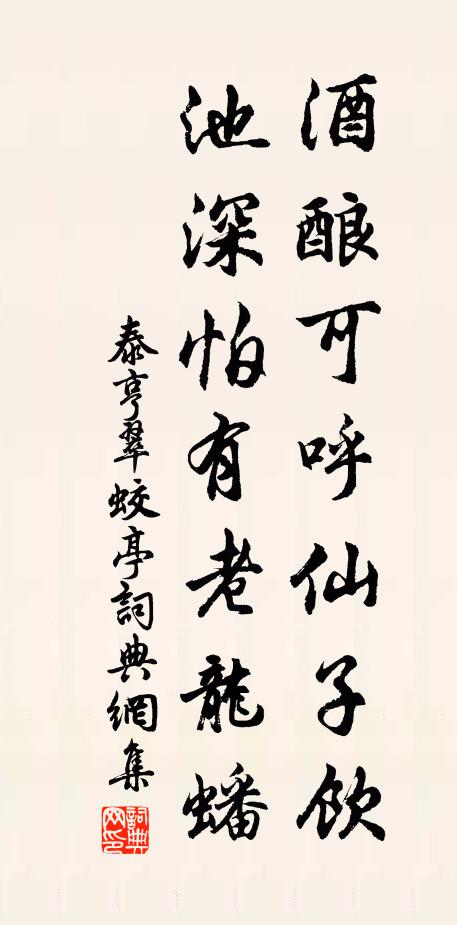 酒酿可呼仙子饮
池深怕有老龍蟠
泰亨翠蛟亭詞典網集
詞典网印